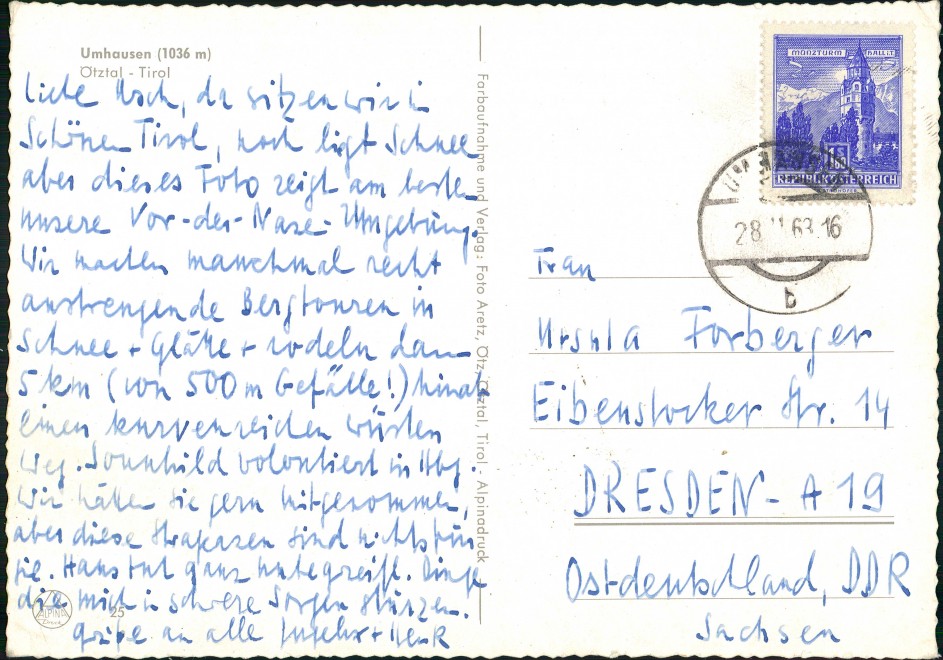 Umhausen (1036 m)
Ötztal - Tirol
Liebe Usch, da sitzen wir in
Schönen Tirol, noch ligt Schnee
aber dieses Foto zeigt am besten
unsere Vor-der-Nase-Umgebung.
Wir machen manchmal recht
anstrengende Bergtouren in
Schnee + Glätte + rodeln dann
5 km (von 500 m Gefälle!) hinab
einen kurvenreichen wüsten
Weg. Sonnhild volontiert in Hbg.
Wir hätten sie gern mitgenommen,
aber diese Strapazen sind nichts für
sie. Hans tut ganz unbegreifl. Dinge
die mich in schwere Sorgen stürzen.
Grüße an alle
ALPINA
25
Farbaufnahme und Verlag: Foto Aretz, Ötz, Ötztal, Tirol - Alpinadruck
MÜNZTURM HALL i.T.
REPUBLIK ÖSTERREICH
28. 63.16
b
Frau
Ursula Forberger
Eibenstocker Str. 14
DRESDEN - A 19
Ostdeutschland, DDR
Sachsen